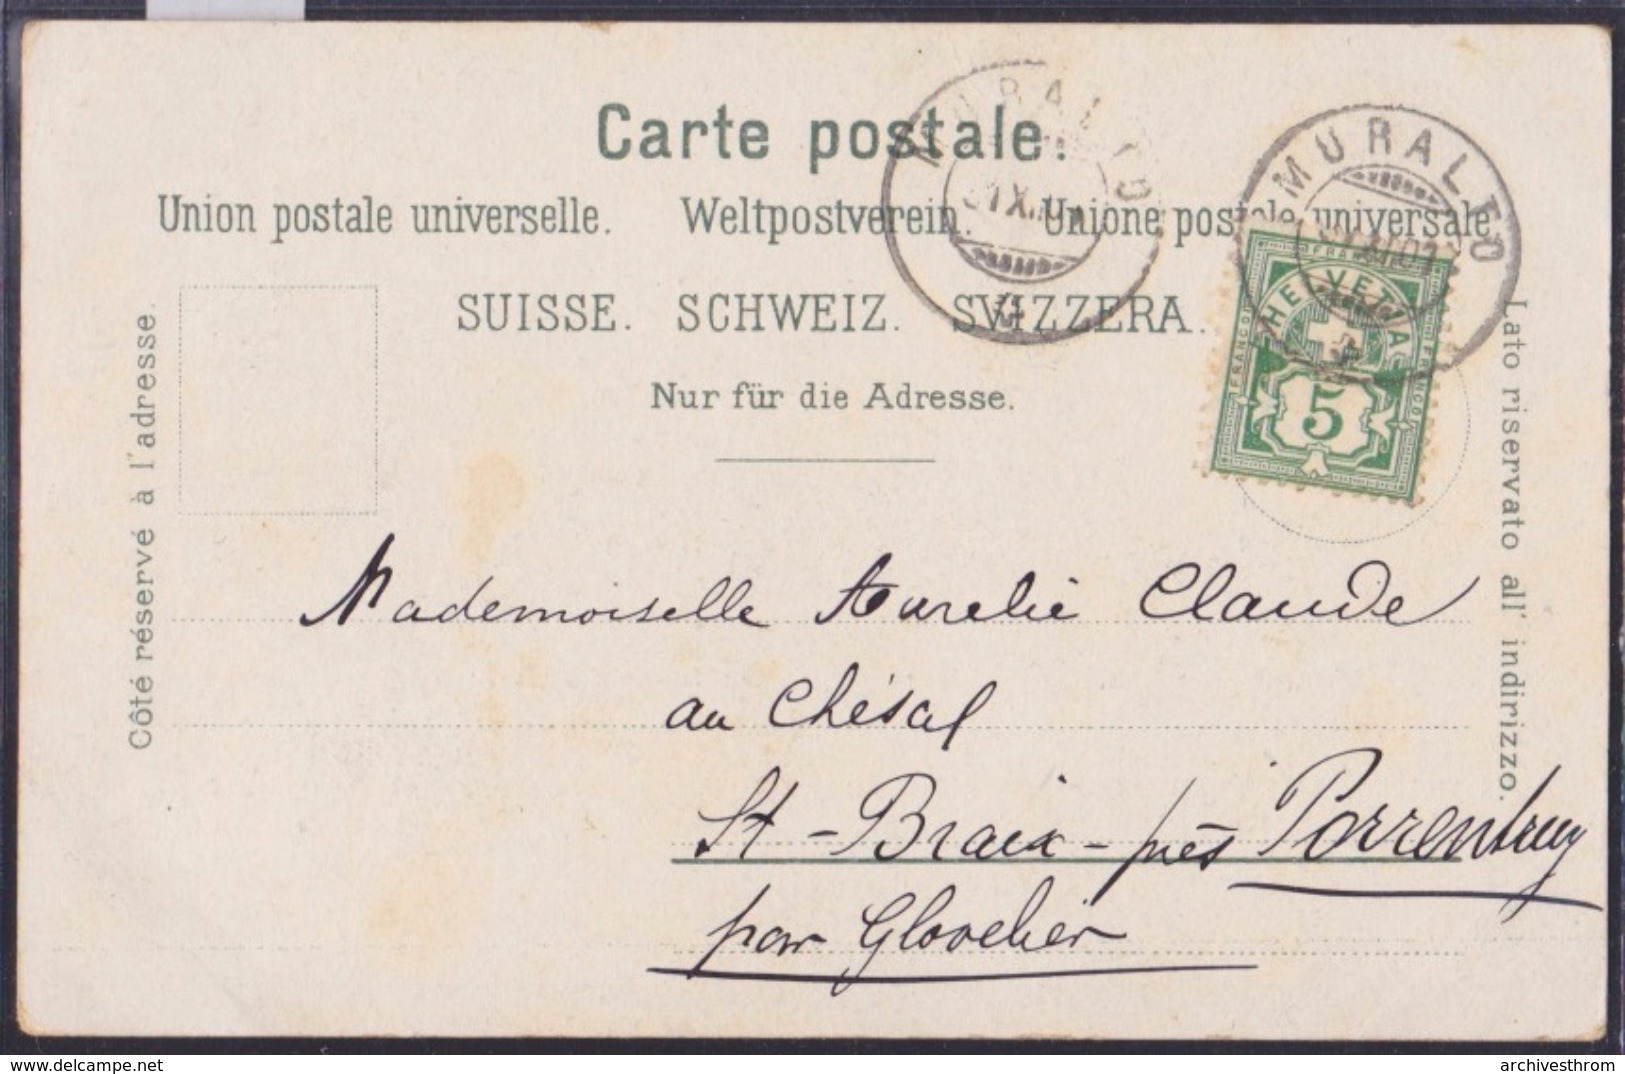 Carte postale.
Union postale universelle. Weltpostverein. Unione postale universale.
SUISSE. SCHWEIZ. SVIZZERA.
Nur für die Adresse.
Côté réservé à l'adresse.
Lato riservato all' indirizzo.
MURALTO
MURALTO
HELVETIA
FRANCO
5
Mademoiselle Aurelie Claude
au Chésal
St-Braix-près Porrentruy
par Glovelier
delcampe.net
archivesthrom